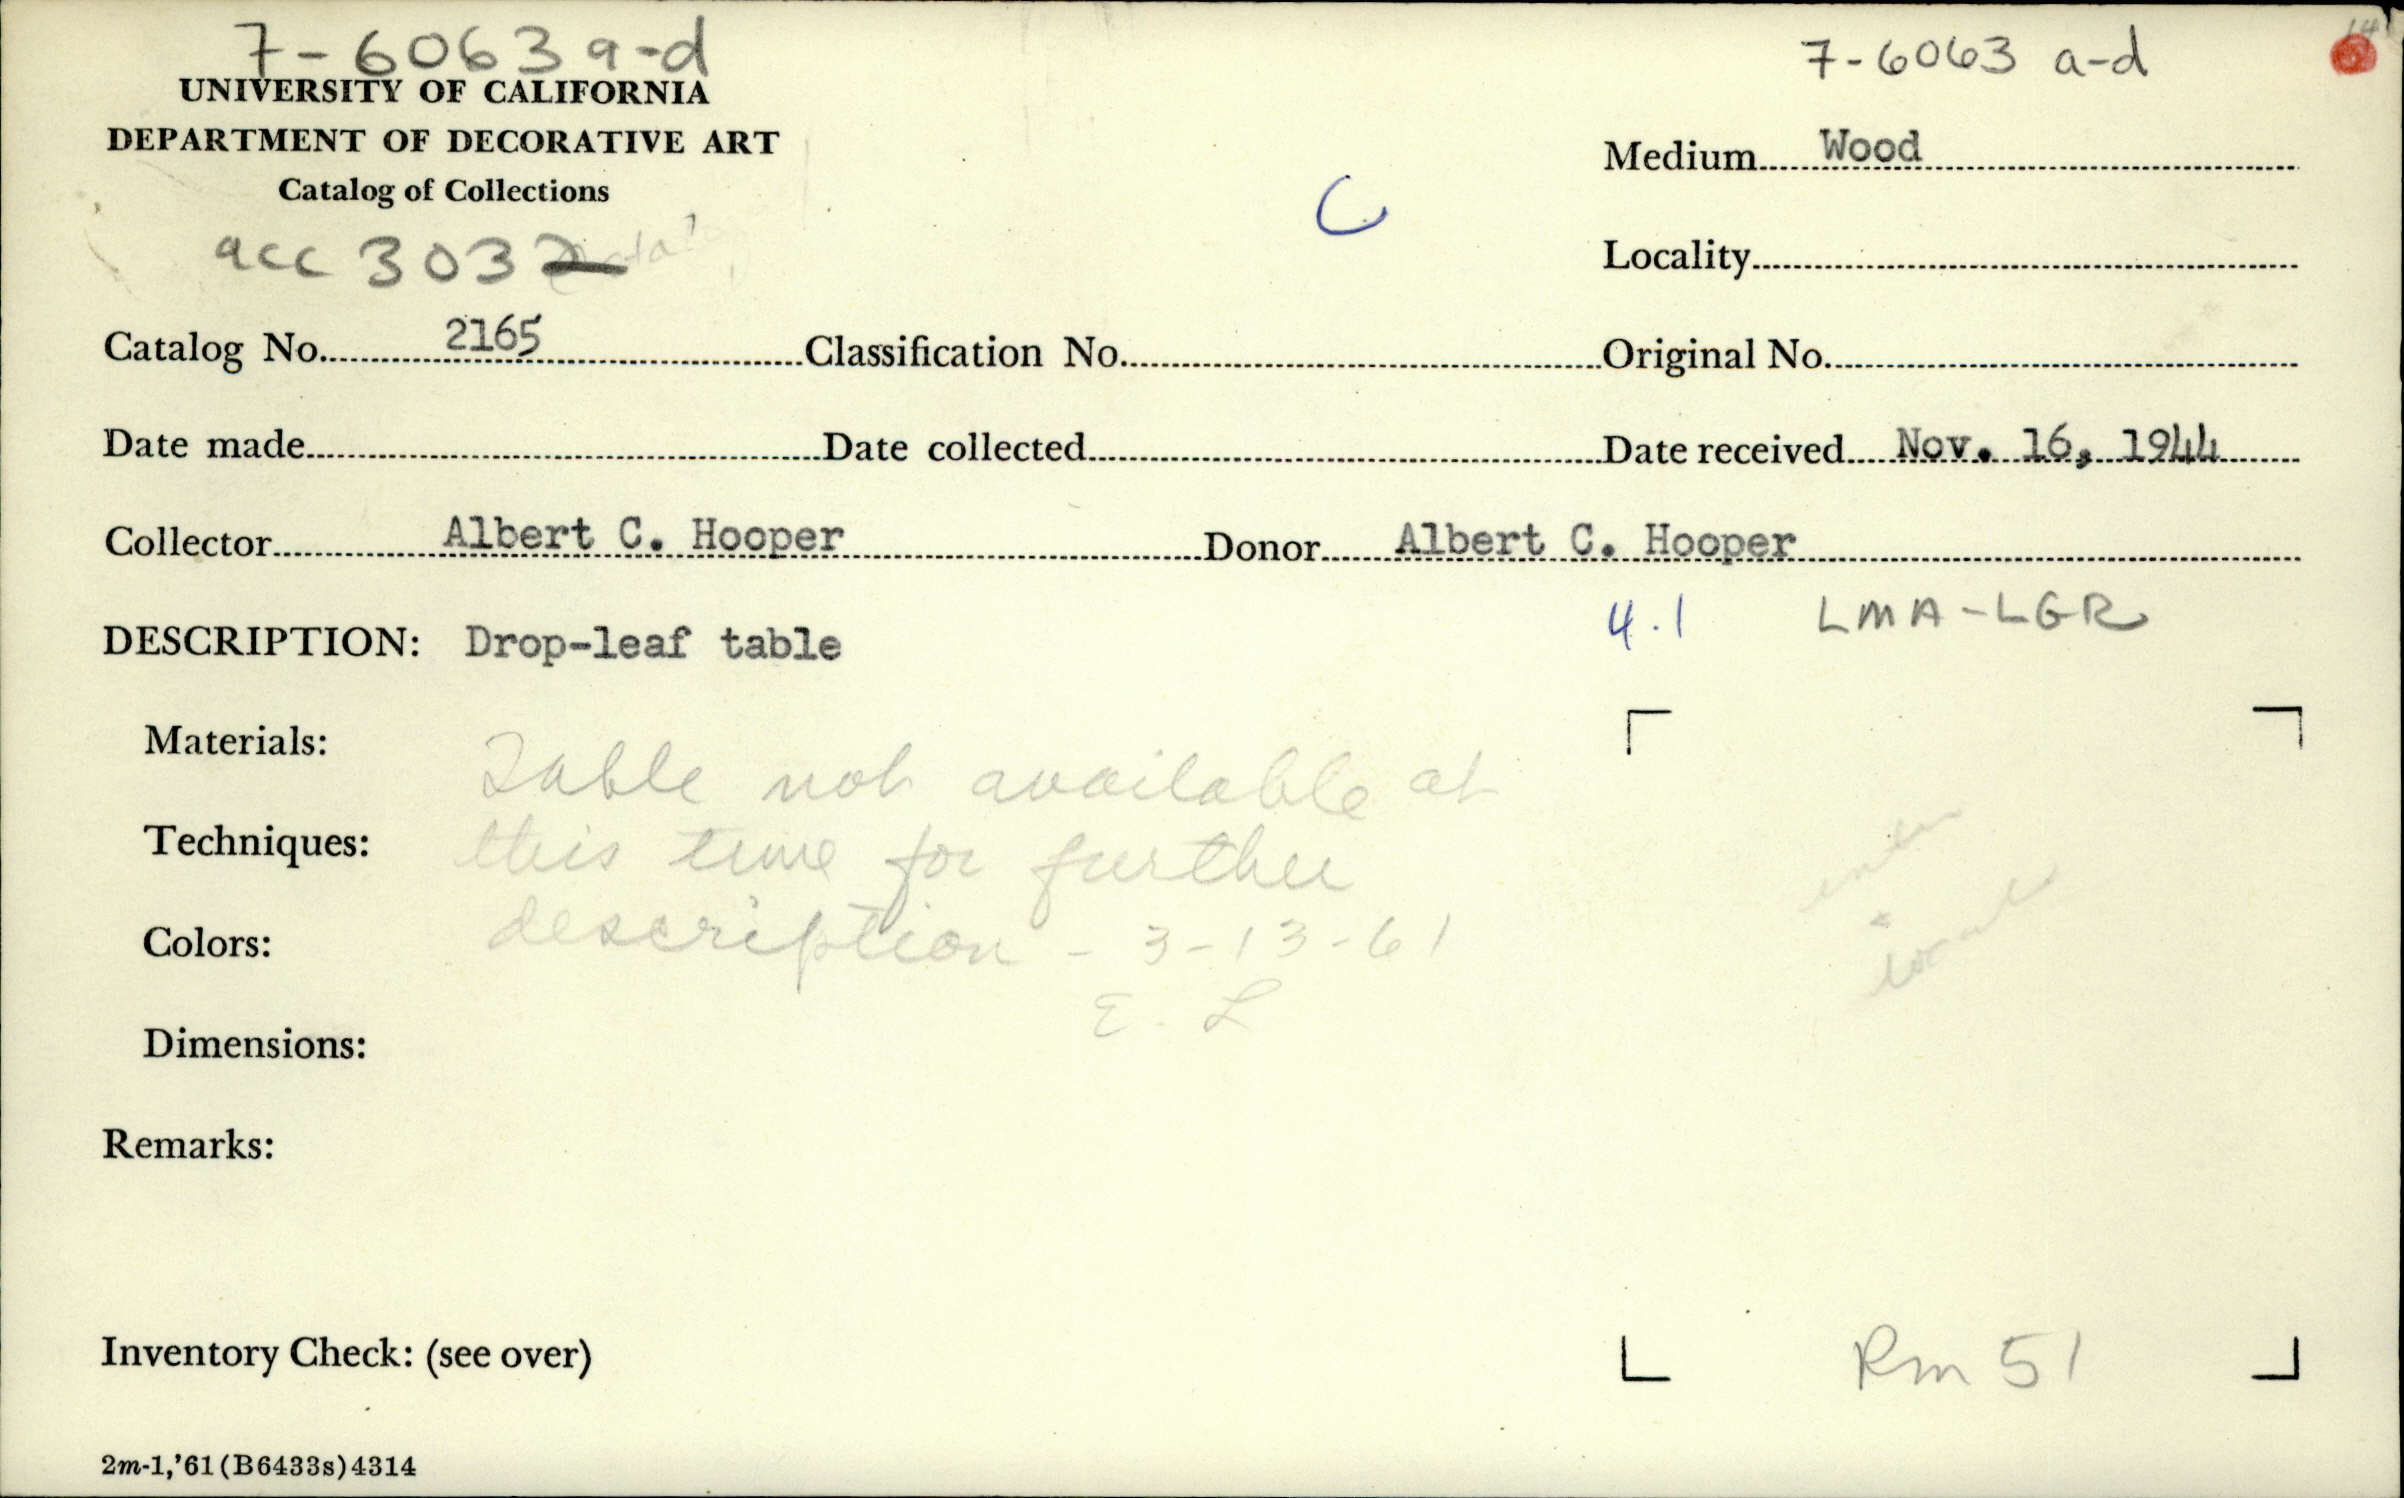 7-6063 a-d
7-6063 a-d
UNIVERSITY OF CALIFORNIA
DEPARTMENT OF DECORATIVE ART
Catalog of Collections
Medium Wood
C
acc 3032
Locality
Catalog No. 2165 Classification No. Original No.
Date made Date collected Date received Nov. 16, 1944
Collector Albert C. Hooper Donor Albert C. Hooper
DESCRIPTION: Drop-leaf table 4.1 LMA-LGR
Materials:
Table not available at
Techniques:
this time for further
Colors:
description - 3-13-61
E. L
Dimensions:
Remarks:
Inventory Check: (see over) Rm 51
2m-1,'61(B6433s)4314